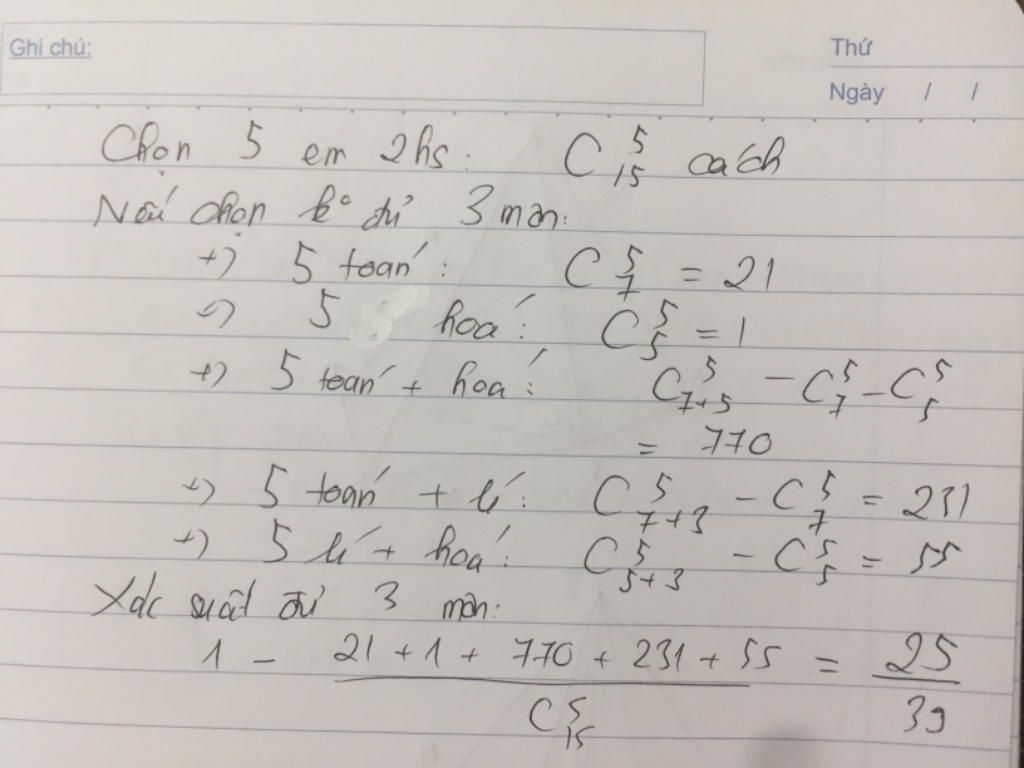 Ghi chú:
Thứ
Ngày / /
Chọn 5 em 2hs: C⁵₁₅ cách
Nếu chọn k° đủ 3 môn:
+) 5 toán: C⁵₇ = 21
+) 5 hoá: C⁵₅ = 1
+) 5 toán + hoá: C⁵₇₊₅ - C⁵₇ - C⁵₅
= 770
+) 5 toán + lí: C⁵₇₊₃ - C⁵₇ = 231
+) 5 lí + hoá: C⁵₅₊₃ - C⁵₅ = 55
Xác suất đủ 3 môn:
1 - (21 + 1 + 770 + 231 + 55) / C⁵₁₅ = 25/39